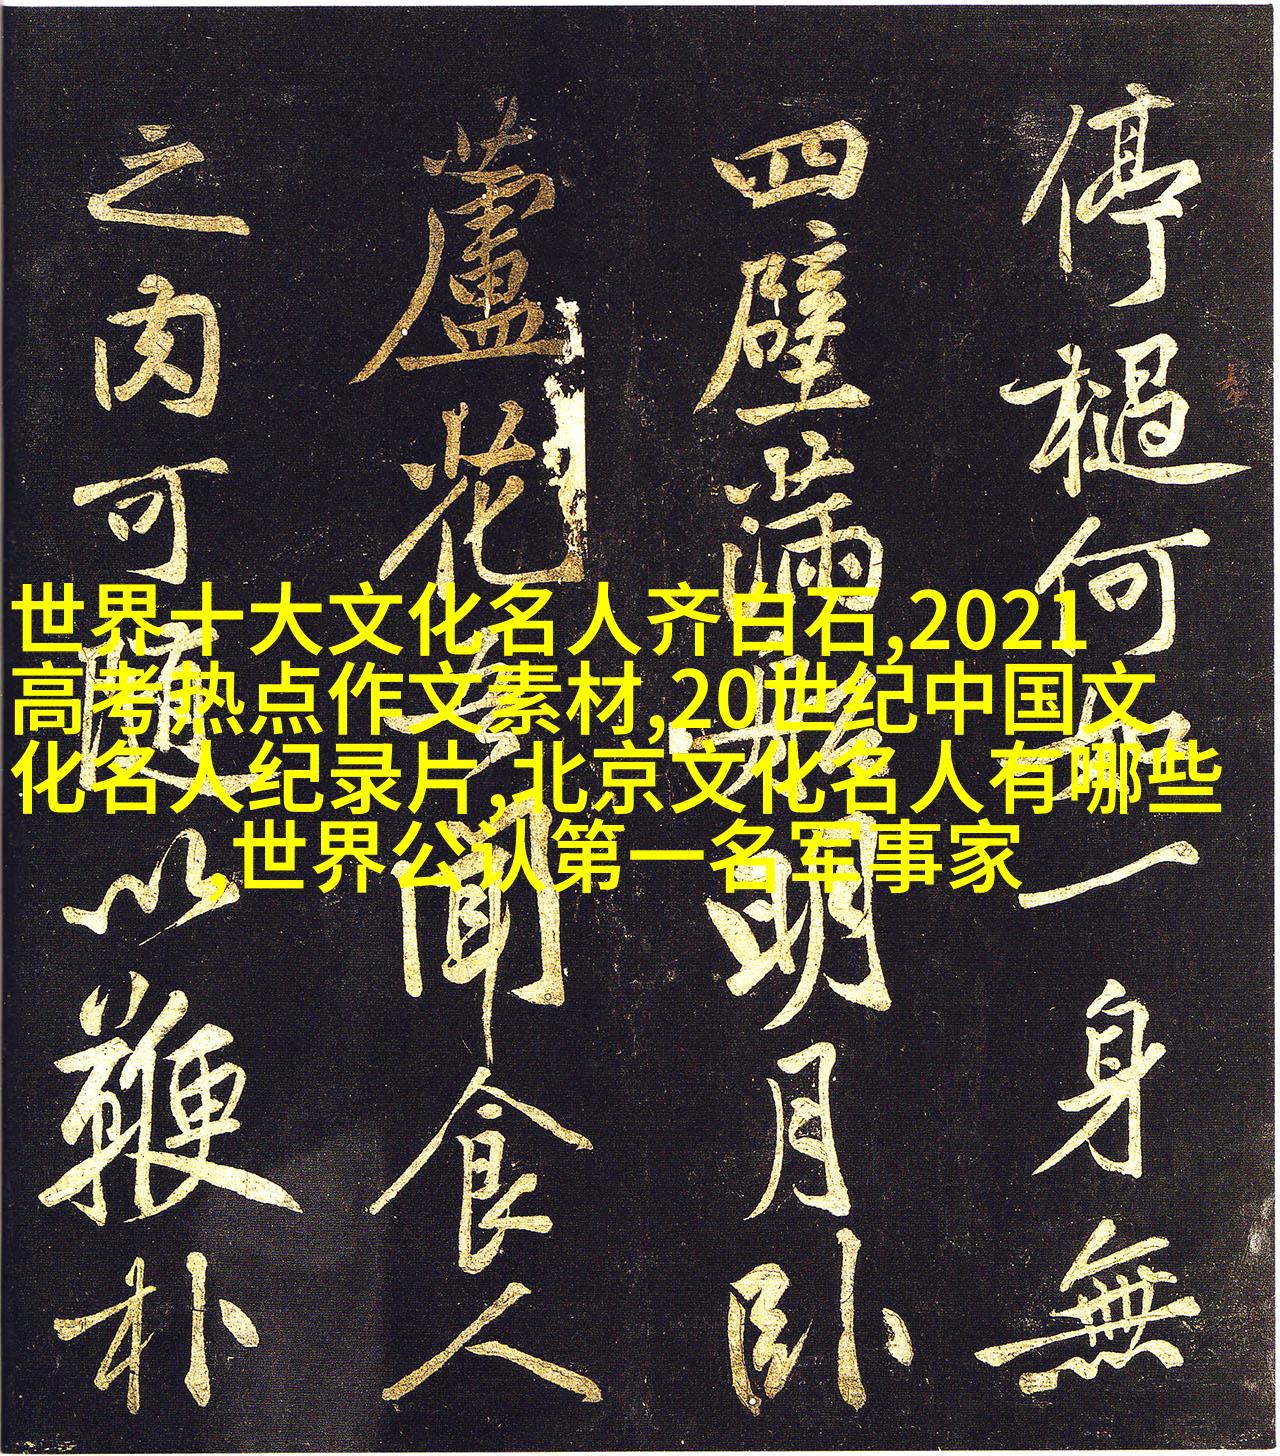 停檛何如一身無
四壁滿船明月卧
蘆花吾聞食人
之肉可隨以鞭朴
世界十大文化名人齐白石,2021
高考热点作文素材,20世纪中国文
化名人纪录片,北京文化名人有哪些
,世界公认第一名军事家